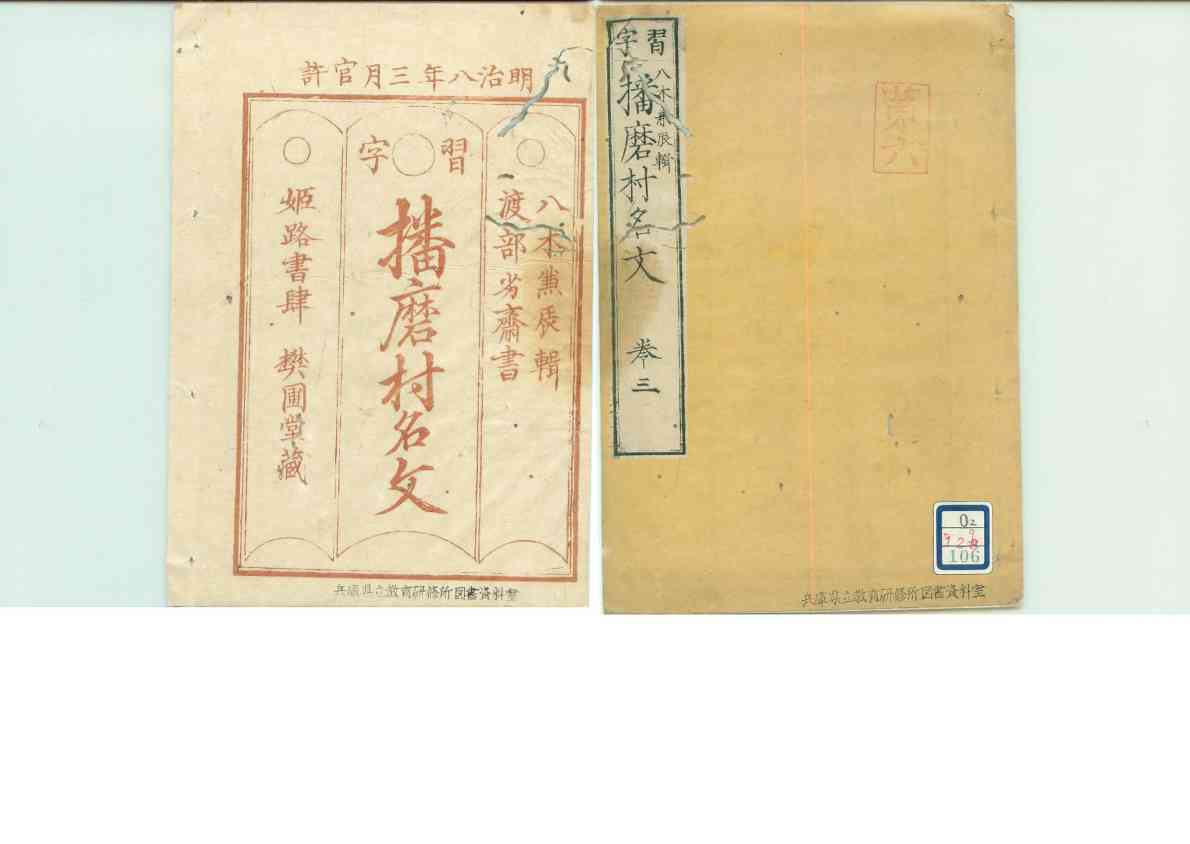 習字
八木兼辰輯
播磨村名文
巻三
第六
02
928
106
兵庫県立教育研修所図書資料室
明治八年三月官許
八木兼辰輯
渡部劣齋書
習字
播磨村名文
姫路書肆 樊圃堂藏
兵庫県立教育研修所図書資料室